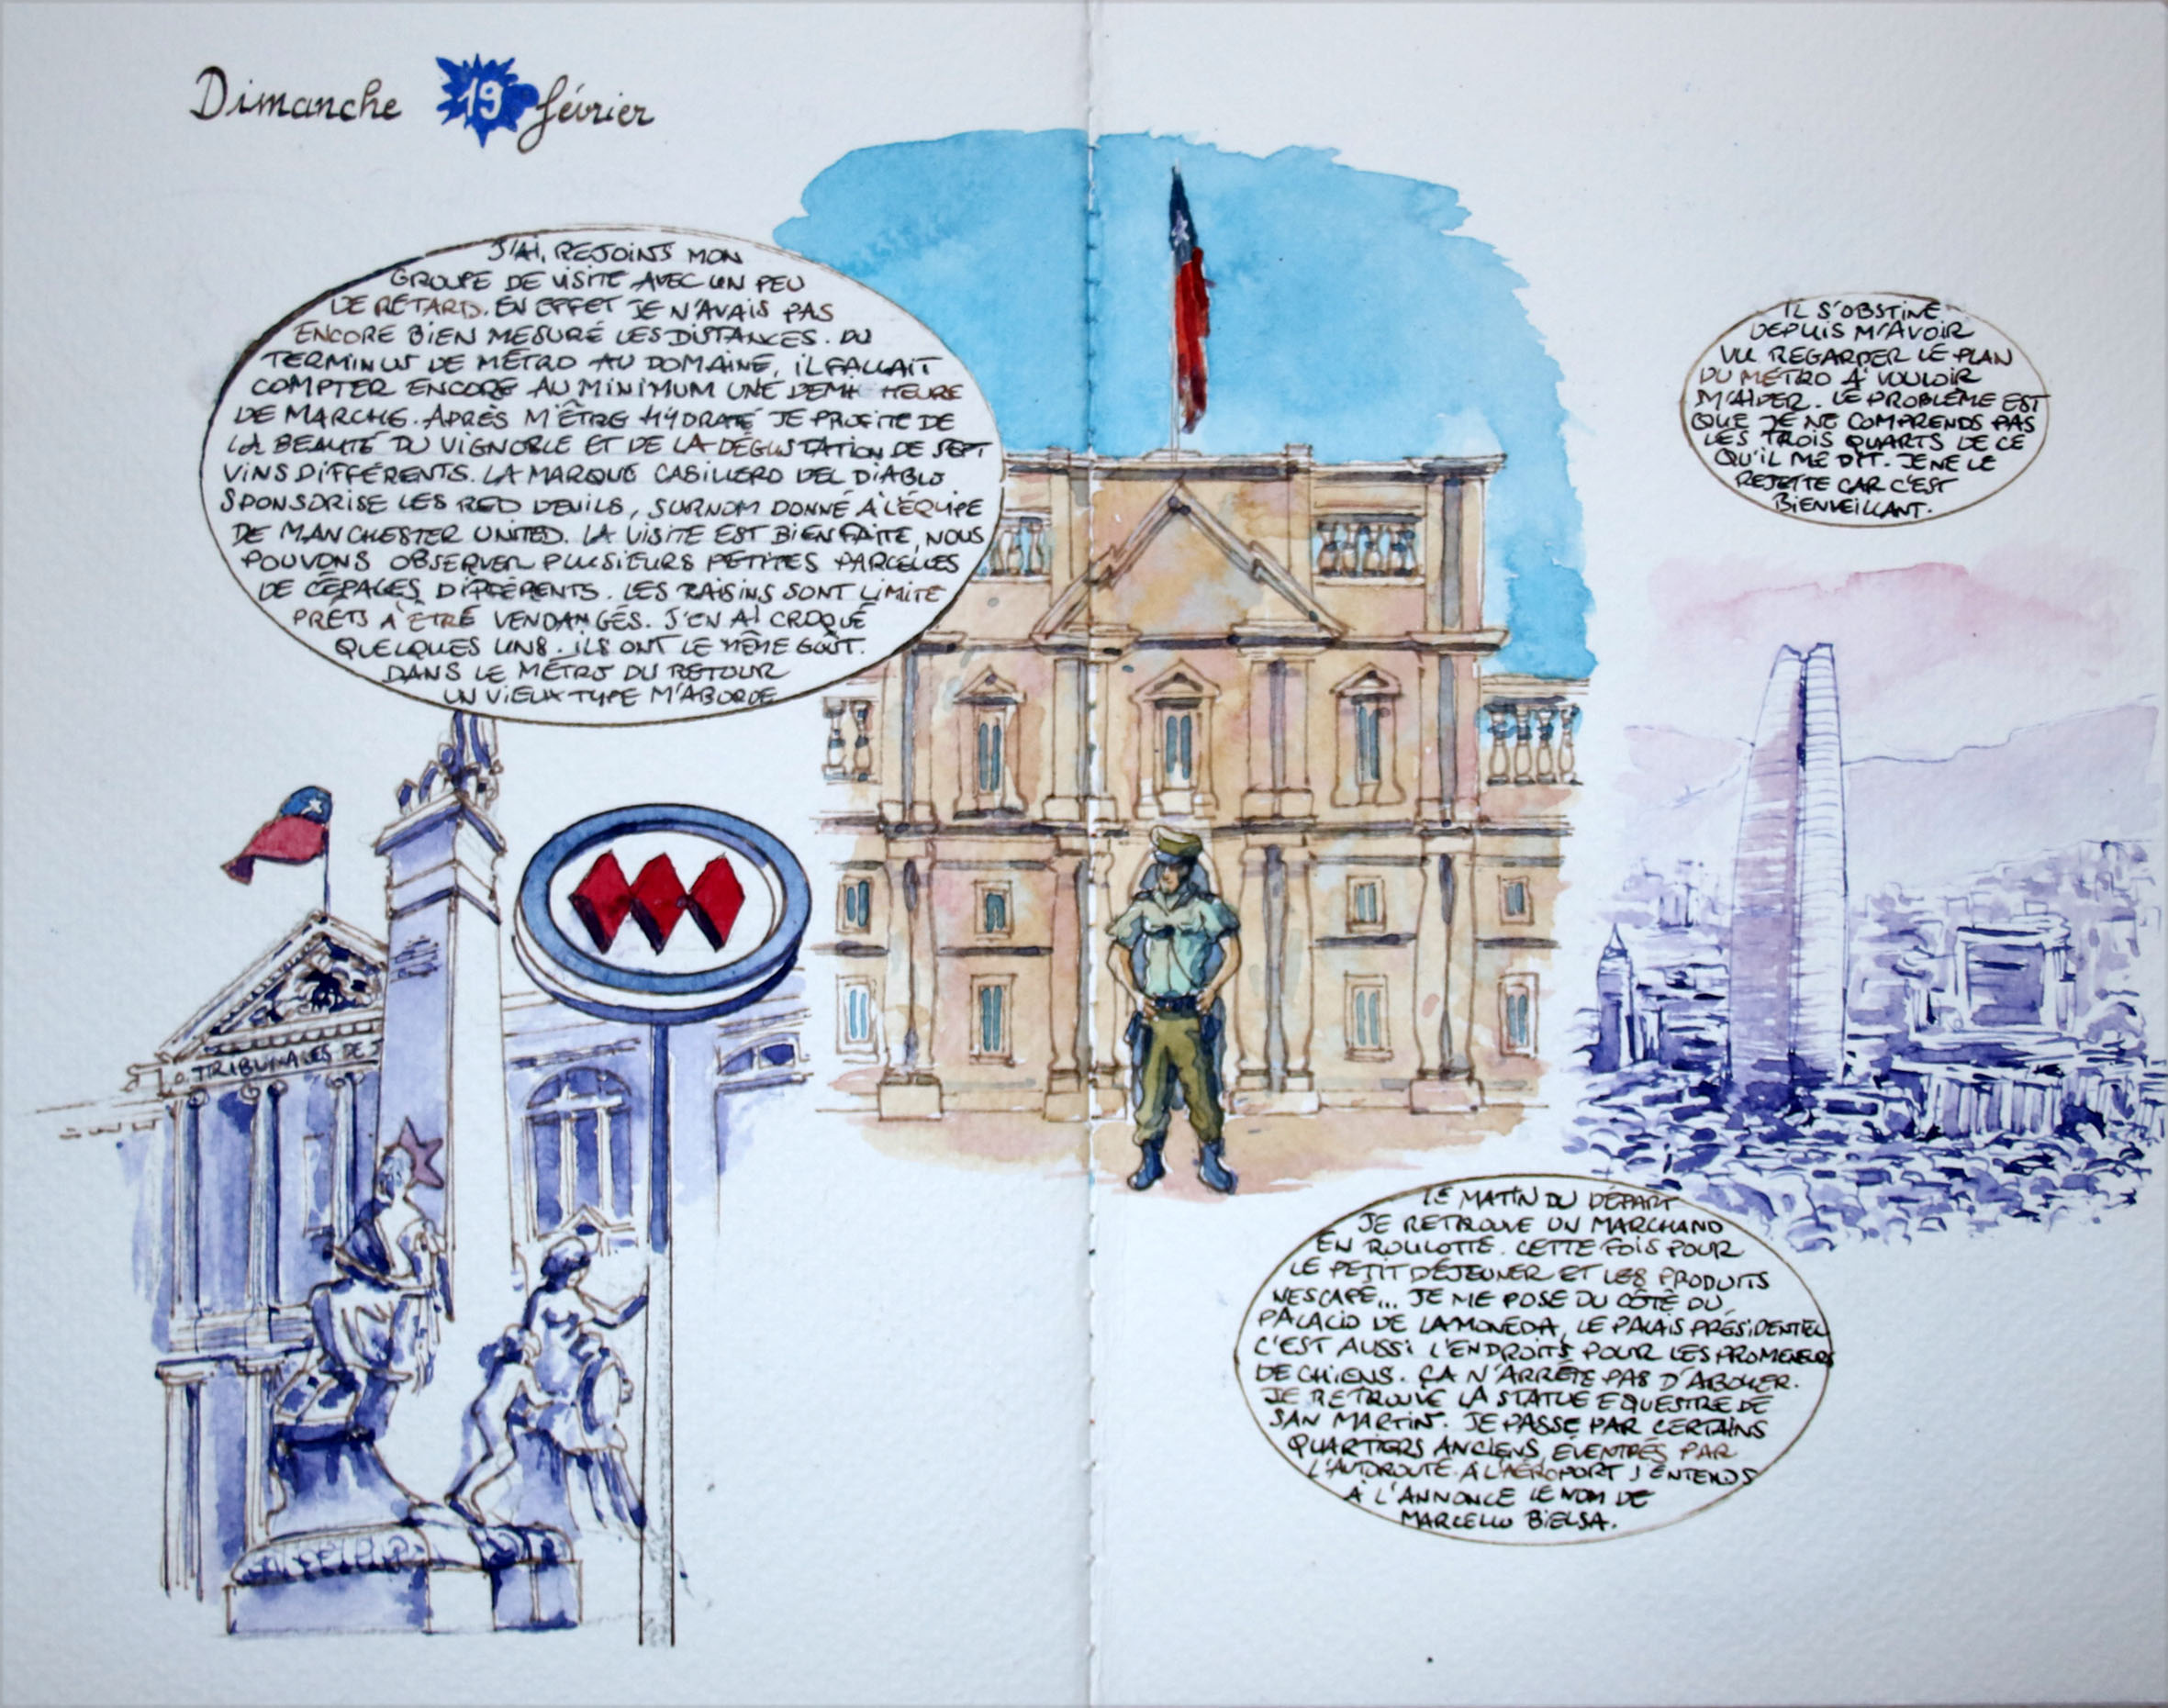 Dimanche 19 février
J'AI REJOINS MON
GROUPE DE VISITE AVEC UN PEU
DE RETARD. EN EFFET JE N'AVAIS PAS
ENCORE BIEN MESURÉ LES DISTANCES. DU
TERMINUS DE MÉTRO AU DOMAINE, IL FALLAIT
COMPTER ENCORE AU MINIMUM UNE DEMI HEURE
DE MARCHE. APRÈS M'ÊTRE HYDRATÉ JE PROFITE DE
LA BEAUTÉ DU VIGNOBLE ET DE LA DÉGUSTATION DE SEPT
VINS DIFFÉRENTS. LA MARQUE CASILLERO DEL DIABLO
SPONSORISE LES RED DEVILS, SURNOM DONNÉ À L'ÉQUIPE
DE MANCHESTER UNITED. LA VISITE EST BIEN FAITE, NOUS
POUVONS OBSERVER PLUSIEURS PETITES PARCELLES
DE CÉPAGES DIFFÉRENTS. LES RAISINS SONT LIMITE
PRÊTS À ÊTRE VENDANGÉS. J'EN AI CROQUÉ
QUELQUES UNS. ILS ONT LE MÊME GOÛT.
DANS LE MÉTRO DU RETOUR
UN VIEUX TYPE M'ABORDE
IL S'OBSTINE
DEPUIS M'AVOIR
VU REGARDER LE PLAN
DU MÉTRO À VOULOIR
M'AIDER. LE PROBLÈME EST
QUE JE NE COMPRENDS PAS
LES TROIS QUARTS DE CE
QU'IL ME DIT. JE NE LE
REJETTE CAR C'EST
BIENVEILLANT.
O. TRIBUNALES DE J
LE MATIN DU DÉPART
JE RETROUVE UN MARCHAND
EN ROULOTTE. CETTE FOIS POUR
LE PETIT DÉJEUNER ET LES PRODUITS
NESCAFÉ... JE ME POSE DU CÔTÉ DU
PALACIO DE LA MONEDA, LE PALAIS PRÉSIDENTIEL
C'EST AUSSI L'ENDROIT POUR LES PROMENEURS
DE CHIENS. ÇA N'ARRÊTE PAS D'ABOYER.
JE RETROUVE LA STATUE EQUESTRE DE
SAN MARTIN. JE PASSE PAR CERTAINS
QUARTIERS ANCIENS, ÉVENTRÉS PAR
L'AUTOROUTE. À L'AÉROPORT J'ENTENDS
À L'ANNONCE LE NOM DE
MARCELLO BIELSA.